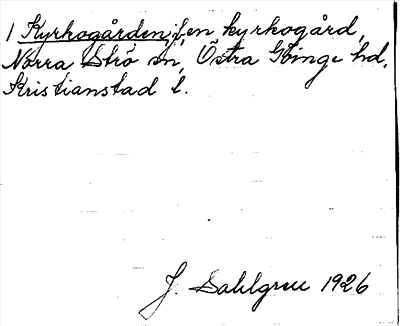 1 Kyrkogården, f. en kyrkogård,
Norra Strö sn, Östra Göinge hd,
Kristianstad l.
J. Sahlgren 1926